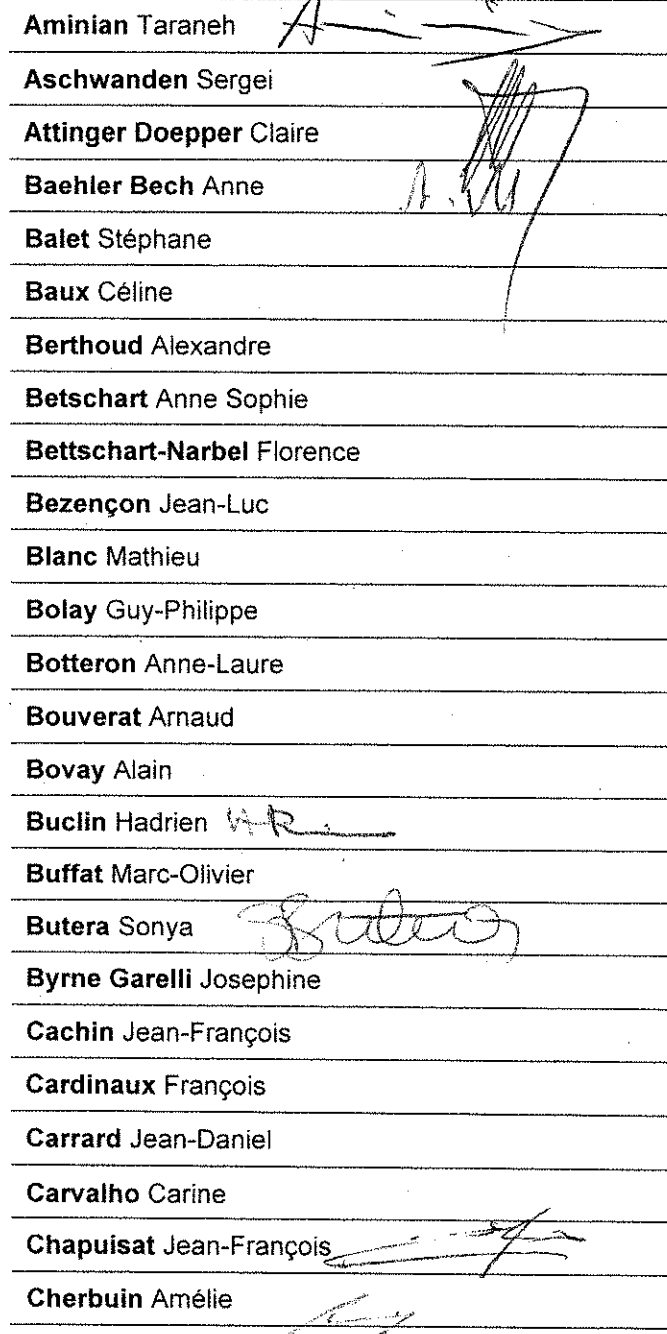 Aminian Taraneh
Aschwanden Sergei
Attinger Doepper Claire
Baehler Bech Anne
Balet Stéphane
Baux Céline
Berthoud Alexandre
Betschart Anne Sophie
Bettschart-Narbel Florence
Bezençon Jean-Luc
Blanc Mathieu
Bolay Guy-Philippe
Botteron Anne-Laure
Bouverat Arnaud
Bovay Alain
Buclin Hadrien
Buffat Marc-Olivier
Butera Sonya SButera
Byrne Garelli Josephine
Cachin Jean-François
Cardinaux François
Carrard Jean-Daniel
Carvalho Carine
Chapuisat Jean-François
Cherbuin Amélie